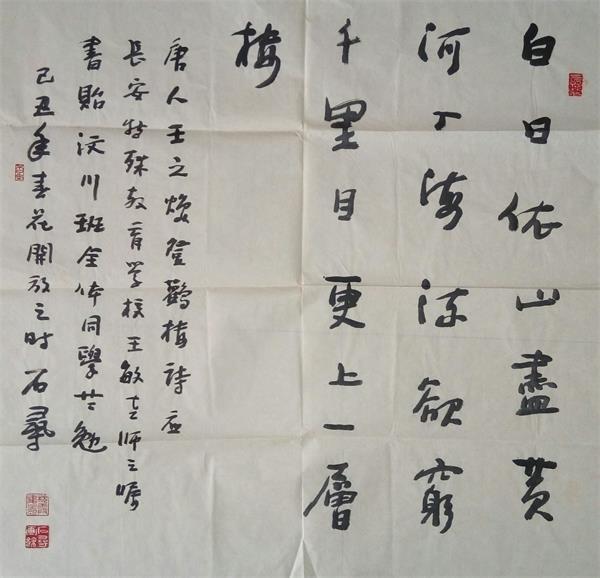 白日依山盡黄
河入海流欲窮
千里目更上一層
楼
唐人王之焕登鹳楼詩应
長安特殊教育学校王敏老师之嘱
書貽汶川班全体同學共勉
己丑年春花開放之时石尋